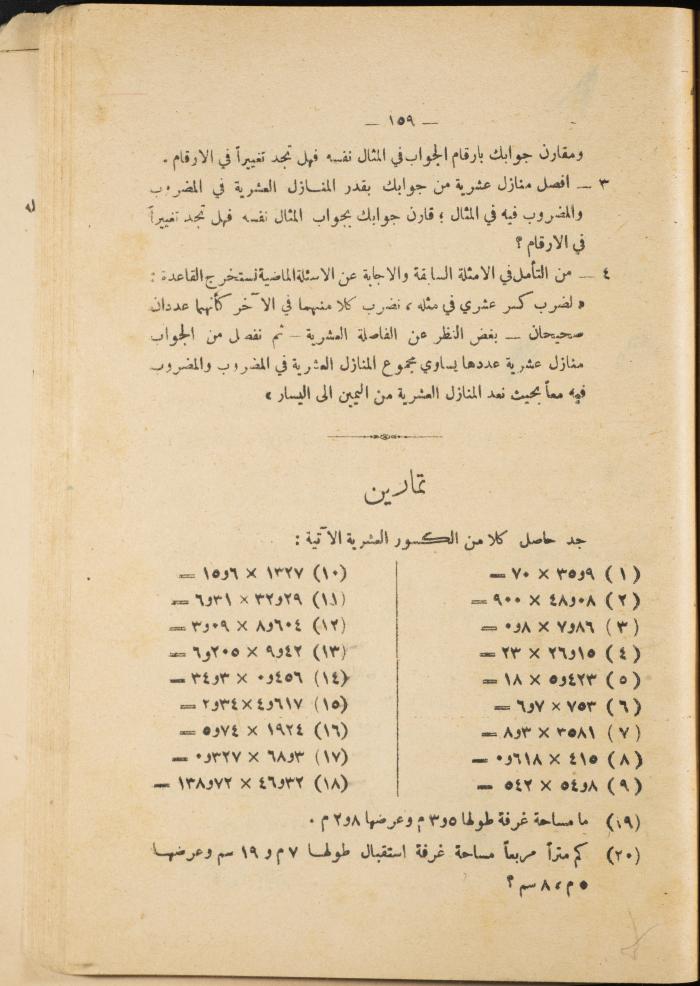 — ١٥٩ —
ومقارن جوابك بارقام الجواب في المثال نفسه فهل تجد تغييراً في الارقام .
٣ — افصل منازل عشرية من جوابك بقدر المنازل العشرية في المضروب
والمضروب فيه في المثال ؛ قارن جوابك بجواب المثال نفسه فهل تجد تغييراً
في الارقام ؟
٤ — من التأمل في الامثلة السابقة والاجابة عن الاسئلة الماضية نستخرج القاعدة :
« لضرب كسر عشري في مثله ، نضرب كلا منهما في الآخر كأنهما عددان
صحيحان — بغض النظر عن الفاصلة العشرية — ثم نفصل من الجواب
منازل عشرية عددها يساوي مجموع المنازل العشرية في المضروب والمضروب
فيه معاً بحيث نعد المنازل العشرية من اليمين الى اليسار »
تمارين
جد حاصل كلا من الكسور العشرية الآتية :
(١) ٣٥و٩ × ٧٠ =
(٢) ٤٨و٠٨ × ٩٠٠ =
(٣) ٧و٨٦ × ٠و٨ =
(٤) ٢٦و١٥ × ٢٣ =
(٥) ٥و٤٢٣ × ١٨ =
(٦) ٧٥٣ × ٦و٧ =
(٧) ٣٥٨١ × ٨و٣ =
(٨) ٤١٥ × ٠و٦١٨ =
(٩) ٥٤و٨ × ٥٤٢ =
(١٠) ١٣٢٧ × ١٥و٦ =
(١١) ٣٢و٢٩ × ٦و٣١ =
(١٢) ٨و٦٠٤ × ٣و٠٩ =
(١٣) ٩و٤٢ × ٦و٢٠٥ =
(١٤) ٠و٤٥٦ × ٣٤و٣ =
(١٥) ٤و٦١٧ × ٢و٣٤ =
(١٦) ١٩٢٤ × ٥و٧٤ =
(١٧) ٦٨و٣ × ٠و٣٢٧ =
(١٨) ٤٦و٣٢ × ١٣٨و٧٢ =
(١٩) ما مساحة غرفة طولها ٣و٥ م وعرضها ٢و٨ م .
(٢٠) كم متراً مربعاً مساحة غرفة استقبال طولها ٧ م و ١٩ سم وعرضها
٥ م ، ٨ سم ؟